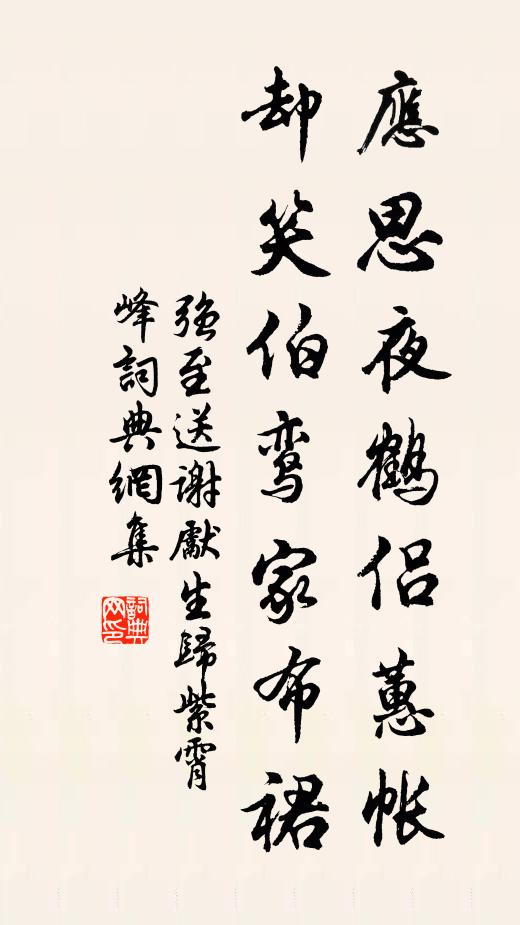 應思夜鶴侣蕙帐
却笑伯鸾家布裙
强至送謝獻生歸紫霄
峰詞典網集
詞典
网印